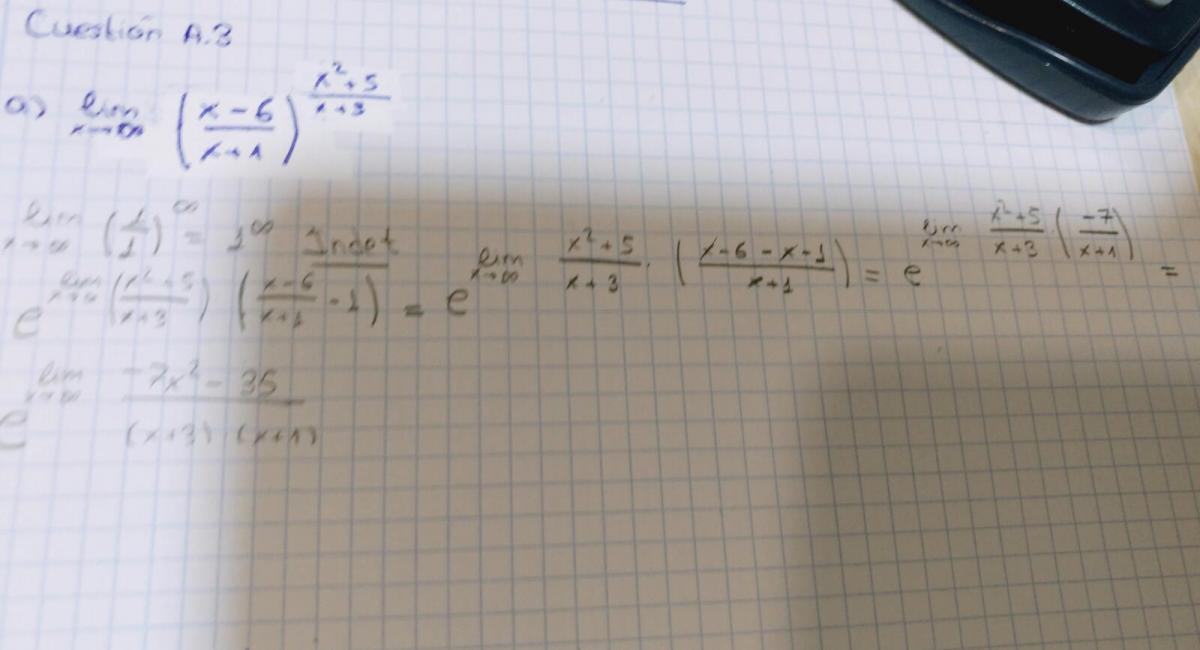 Cuestión A.3
a) lim x→∞ ( (x-6)/(x+1) )^((x²+5)/(x+3))
lim x→∞ (1/1)^∞ = 1^∞ Indet
e^(lim x→∞ ((x²+5)/(x+3)) ((x-6)/(x+1) - 1)) = e^(lim x→∞ (x²+5)/(x+3) · ((x-6-x-1)/(x+1))) = e^(lim x→∞ (x²+5)/(x+3) · (-7/(x+1))) =
e^(lim x→∞ (-7x²-35)/((x+3)(x+1)))